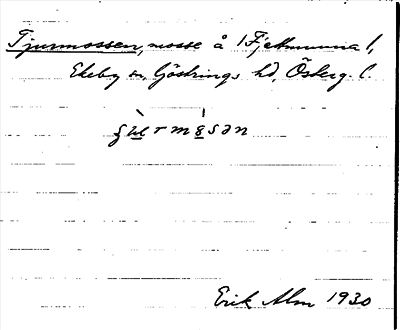 Tjurmossen, mosse å 1 Fjettmunna 1,
Ekeby sn, Göstrings hd, Österg. l.
Erik Alm 1930